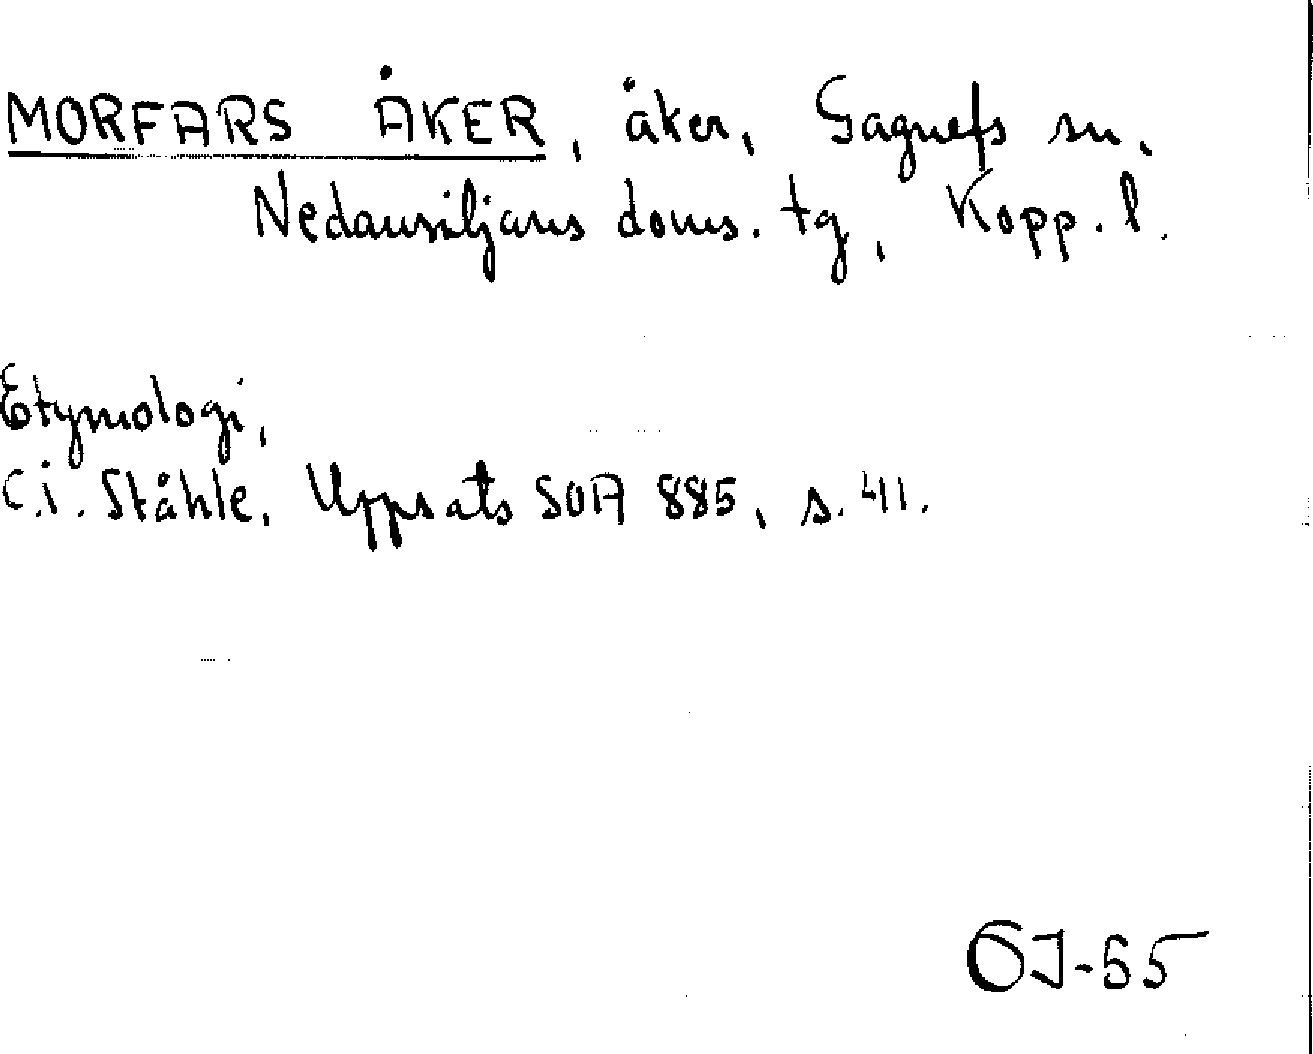 MORFARS ÅKER, åker, Gagnefs sn,
Nedansiljans doms. tg, Kopp. l.
Etymologi,
C.I. Ståhle, Uppsats SOA 885, s. 411.